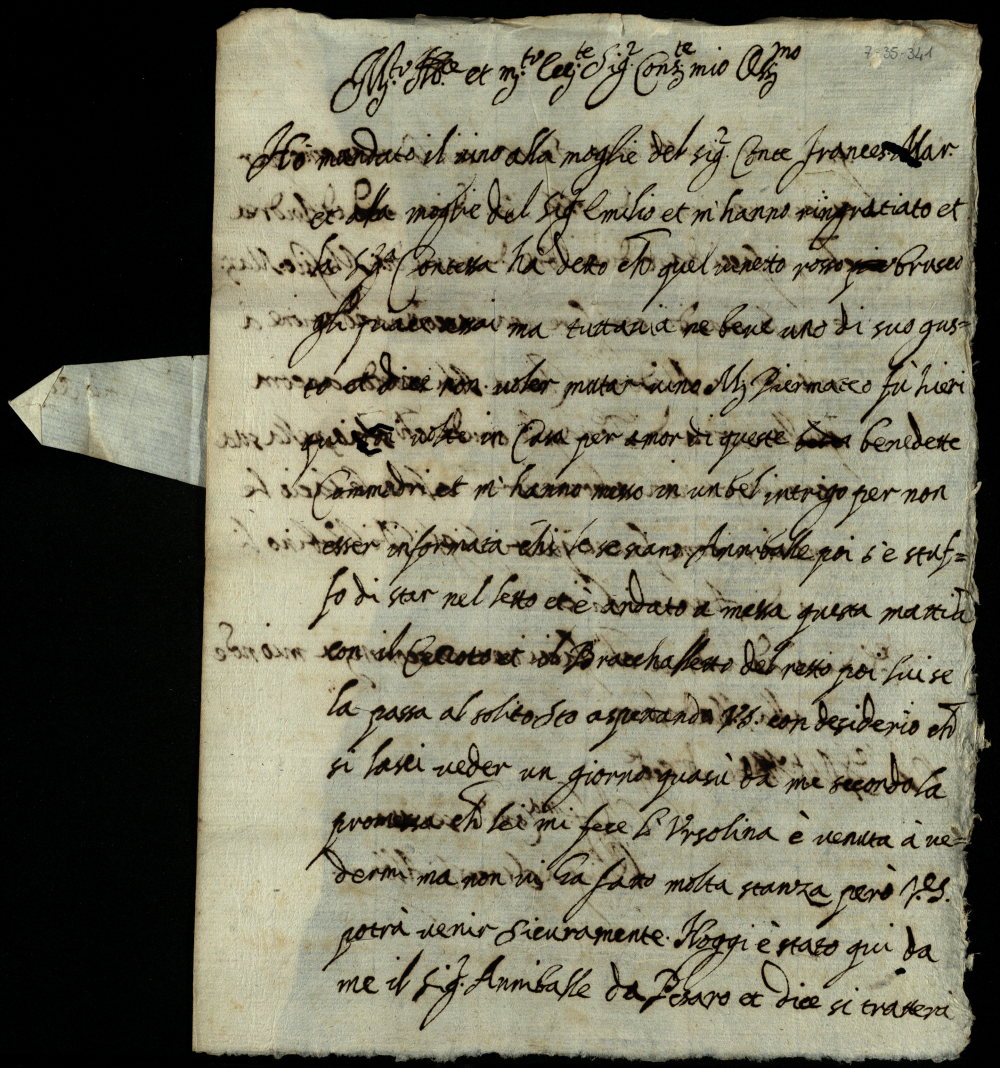 7-35-341
M.to Ill.e et m.to Ecc.te Sig.r Cons.te mio Oss.mo
Hò mandato il uino alla moglie del sig.r Conte Frances Mar.
et alla moglie del Sig.r Emilio et m'hanno ringratiato et
la Sig.ra Contessa hà detto ch̃ quel uinetto rosso brusco
gli piace assai ma tuttauia ne beue uno di suo gus=
to et dice non uoler mutar uino M.r Piermateo fù hieri
qui uolte in Casa per amor di queste benedette
Commadri et m'hanno messo in un bel intrigo per non
esser informata ch̃ le se siano Anniballe poi s'è stuf=
fo di star nel letto et è andato a messa questa mattina
con il et il Bracchalletto del resto poi lui se
la passa al solito sto aspetando V.S. con desiderio ch̃
si lasci ueder un giorno quasù da me secondo la
promessa ch̃ lei mi fece la Ursolina è uenuta à ue=
dermi ma non ui ha fatto molta stanza però V.S.
potrà uenir sicuramente. Hoggi è stato qui da
me il Sig.r Anniballe da Pesaro et dice si tratterà